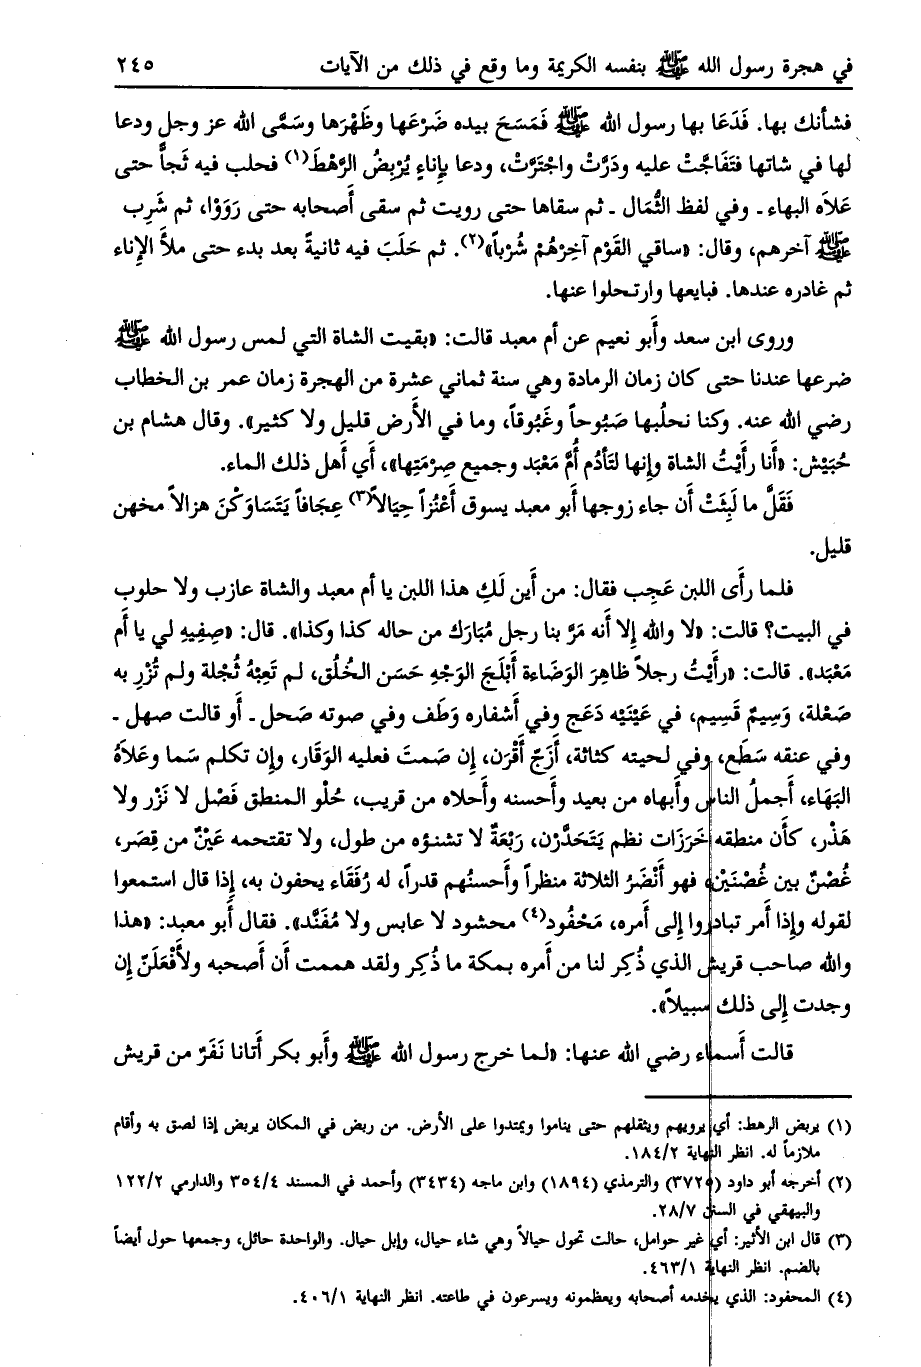 في هجرة رسول الله ﷺ بنفسه الكريمة وما وقع في ذلك من الآيات ٢٤٥
فشأنك بها. فَدَعَا بها رسول الله ﷺ فَمَسَحَ بيده ضَرْعَها وظَهْرَها وسَمَّى الله عز وجل ودعا
لها في شاتها فتَفَاجَّتْ عليه ودَرَّتْ واجْتَرَّتْ، ودعا بإناءٍ يُرْبِضُ الرَّهْطَ(١) فحلب فيه ثَجاً حتى
عَلاَه البهاء ـ وفي لفظ الثُّمَال ـ ثم سقاها حتى رويت ثم سقى أَصحابه حتى رَوَوْا، ثم شَرِب
ﷺ آخرهم، وقال: «ساقي القَوْم آخِرْهُمْ شُرْباً»(٢). ثم حَلَبَ فيه ثانيةً بعد بدء حتى ملأَ الإِناء
ثم غادره عندها. فبايعها وارتحلوا عنها.
وروى ابن سعد وأَبو نعيم عن أم معبد قالت: «بقيت الشاة التي لمس رسول الله ﷺ
ضرعها عندنا حتى كان زمان الرمادة وهي سنة ثماني عشرة من الهجرة زمان عمر بن الخطاب
رضي الله عنه. وكنا نحلُبها صَبُوحاً وغَبُوقاً، وما في الأَرض قليل ولا كثير». وقال هشام بن
حُبَيْش: «أَنا رأَيْتُ الشاة وإنها لتَأدُم أُمَّ مَعْبَد وجميع صِرْمَتِها»، أَي أَهل ذلك الماء.
فَقَلَّ ما لَبِثَتْ أَن جاء زوجها أَبو معبد يسوق أَعْنُزاً حِيَالاً(٣) عِجَافاً يَتَسَاوَكْنَ هزالاً مخهن
قليل.
فلما رأَى اللبن عَجِب فقال: من أَين لَكِ هذا اللبن يا أم معبد والشاة عازب ولا حلوب
في البيت؟ قالت: «لا والله إِلا أَنه مَرَّ بنا رجل مُبَارَك من حاله كذا وكذا». قال: «صِفِيهِ لي يا أُم
مَعْبَد». قالت: «رأَيْتُ رجلاً ظاهِرَ الوَضَاءة أَبْلَجَ الوَجْهِ حَسَن الخُلُق، لم تَعِبْهُ ثُجْلة ولم تُزْرِ به
صَعْلة، وَسِيمٌ قَسِيم، في عَيْنَيْه دَعَج وفي أَشفاره وَطَف وفي صوته صَحل ـ أَو قالت صهل ـ
وفي عنقه سَطَع، وفي لحيته كثاثة، أَزَجّ أَقْرَن، إِن صَمتَ فعليه الوَقَار، وإِن تكلم سَما وعَلاَهُ
البَهَاء، أَجملُ الناس وأَبهاه من بعيد وأَحسنه وأَحلاه من قريب، حُلْو المنطق فَصْل لا نَزْر ولا
هَذْر، كأَن منطقه خَرَزَات نظم يَتَحَدَّرْن، رَبْعَةٌ لا تشنؤه من طول، ولا تقتحمه عَيْنٌ من قِصَر،
غُصْنٌ بين غُصْنَيْن، فهو أَنْضَرُ الثلاثة منظراً وأَحسنُهم قدراً، له رُفَقَاء يحفون به، إِذا قال استمعوا
لقوله وإِذا أَمر تبادروا إِلى أَمره، مَحْفُود(٤) محشود لا عابس ولا مُفَنَّد». فقال أَبو معبد: «هذا
والله صاحب قريش الذي ذُكِر لنا من أَمره بمكة ما ذُكِر ولقد هممت أَن أَصحبه ولأَفْعَلَنّ إِن
وجدت إِلى ذلك سبيلاً».
قالت أَسماء رضي الله عنها: «لما خرج رسول الله ﷺ وأَبو بكر أَتانا نَفَرٌ من قريش
(١) يربض الرهط: أي يرويهم ويثقلهم حتى يناموا ويمتدوا على الأرض. من ربض في المكان يربض إذا لصق به وأقام
ملازماً له. انظر النهاية ١٨٤/٢.
(٢) أخرجه أبو داود (٣٧٢٥) والترمذي (١٨٩٤) وابن ماجه (٣٤٣٤) وأحمد في المسند ٣٥٤/٤ والدارمي ١٢٢/٢
والبيهقي في السنن ٢٨/٧.
(٣) قال ابن الأثير: أي غير حوامل، حالت تحول حيالاً وهي شاء حيال، وإبل حيال. والواحدة حائل، وجمعها حول أيضاً
بالضم. انظر النهاية ٤٦٣/١.
(٤) المحفود: الذي يخدمه أصحابه ويعظمونه ويسرعون في طاعته. انظر النهاية ٤٠٦/١.